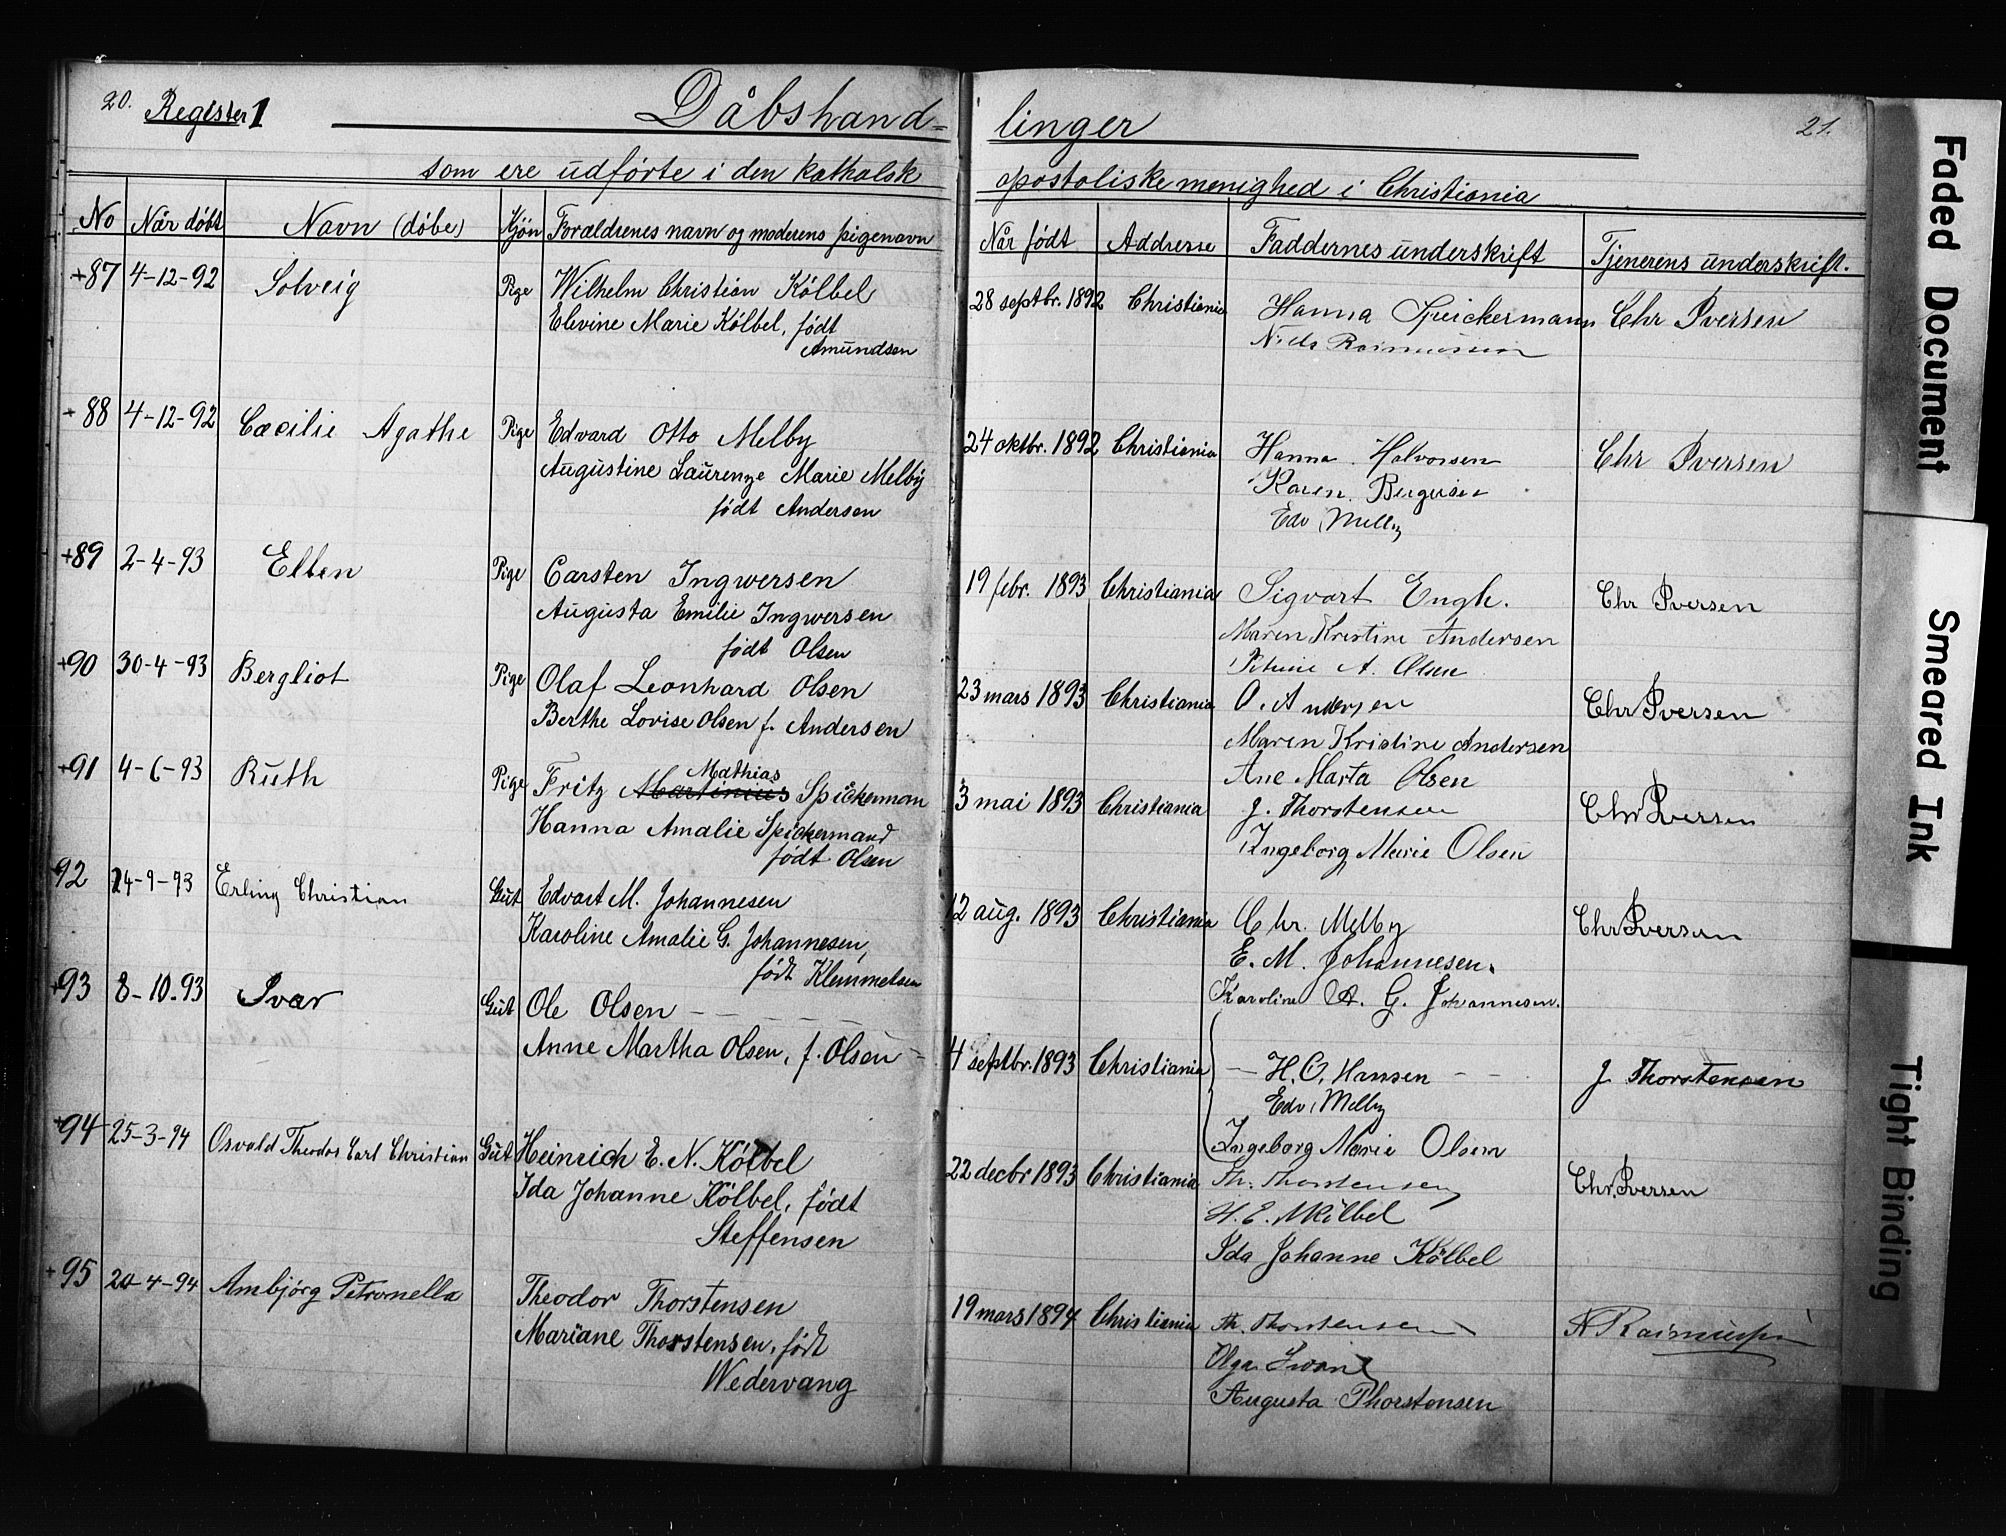 20. Register 1 Dåbshand=
som ere udførte i den katholsk
No Når døbt Navn (døbe) Kjön Forældrenes navn og moderens pigenavn
+87 4-12-92 Solveig Pige Wilhelm Christian Kölbel
Elevine Marie Kölbel, født
Amundsen
+88 4-12-92 Cæcilie Agathe Pige Edvard Otto Melby
Augustine Laurenze Marie Melby
født Andersen
+89 2-4-93 Ellen Pige Carsten Ingwersen
Augusta Emilie Ingwersen
født Olsen
+90 30-4-93 Bergliot Pige Olaf Leonhard Olsen
Berthe Lovise Olsen f. Andersen
Mathias
+91 4-6-93 Ruth Pige Fritz Martinius Spickerman
Hanna Amalie Spickermand
født Olsen
+92 24-9-93 Erling Christian Gut Edvart M. Johannesen
Karoline Amalie G. Johannesen,
født Klemmetsen
+93 8-10-93 Ivar Gut Ole Olsen
Anne Martha Olsen, f. Olsen
+94 25-3-94 Osvald Theodor Carl Christian Gut Heinrich E. N. Kölbel
Ida Johanne Kölbel, født
Steffensen
+95 20-4-94 Ambjörg Petronella Theodor Thorstensen
Mariane Thorstensen, født
Wedervang
linger 21.
apostoliske menighed i Christiania
Når født Addresse Faddernes underskrift Tjenerens underskrift.
28 septbr. 1892 Christiania Hanna Speickermann Chr Iversen
Niels Rasmussen
24 oktbr. 1892 Christiania Hanna Halvorsen Chr Iversen
Karen Bergersen
Edv. Melby
19 febr. 1893 Christiania Sigvart Engh. Chr Iversen
Maren Kristine Andersen
A. Olsen
23 mars 1893 Christiania O. Andersen Chr Iversen
Maren Kristine Andersen
Ane Marta Olsen
3 mai 1893 Christiania J. Thorstensen Chr Iversen
Ingeborg Marie Olsen
12 aug. 1893 Christiania Chr. Melby Chr Iversen
E. M. Johannesen.
Karoline A. G. Johannesen.
4 septbr. 1893 Christiania H. O. Hansen J Thorstensen
Edv. Melby
Ingeborg Marie Olsen
22 decbr 1893 Christiania Th. Thorstensen Chr. Iversen
H. E. N Kölbel
Ida Johanne Kölbel
19 mars 1894 Christiania Th. Thorstensen N Rasmussen
Olga
Augusta Thorstensen
Faded Document
Smeared Ink
Tight Binding